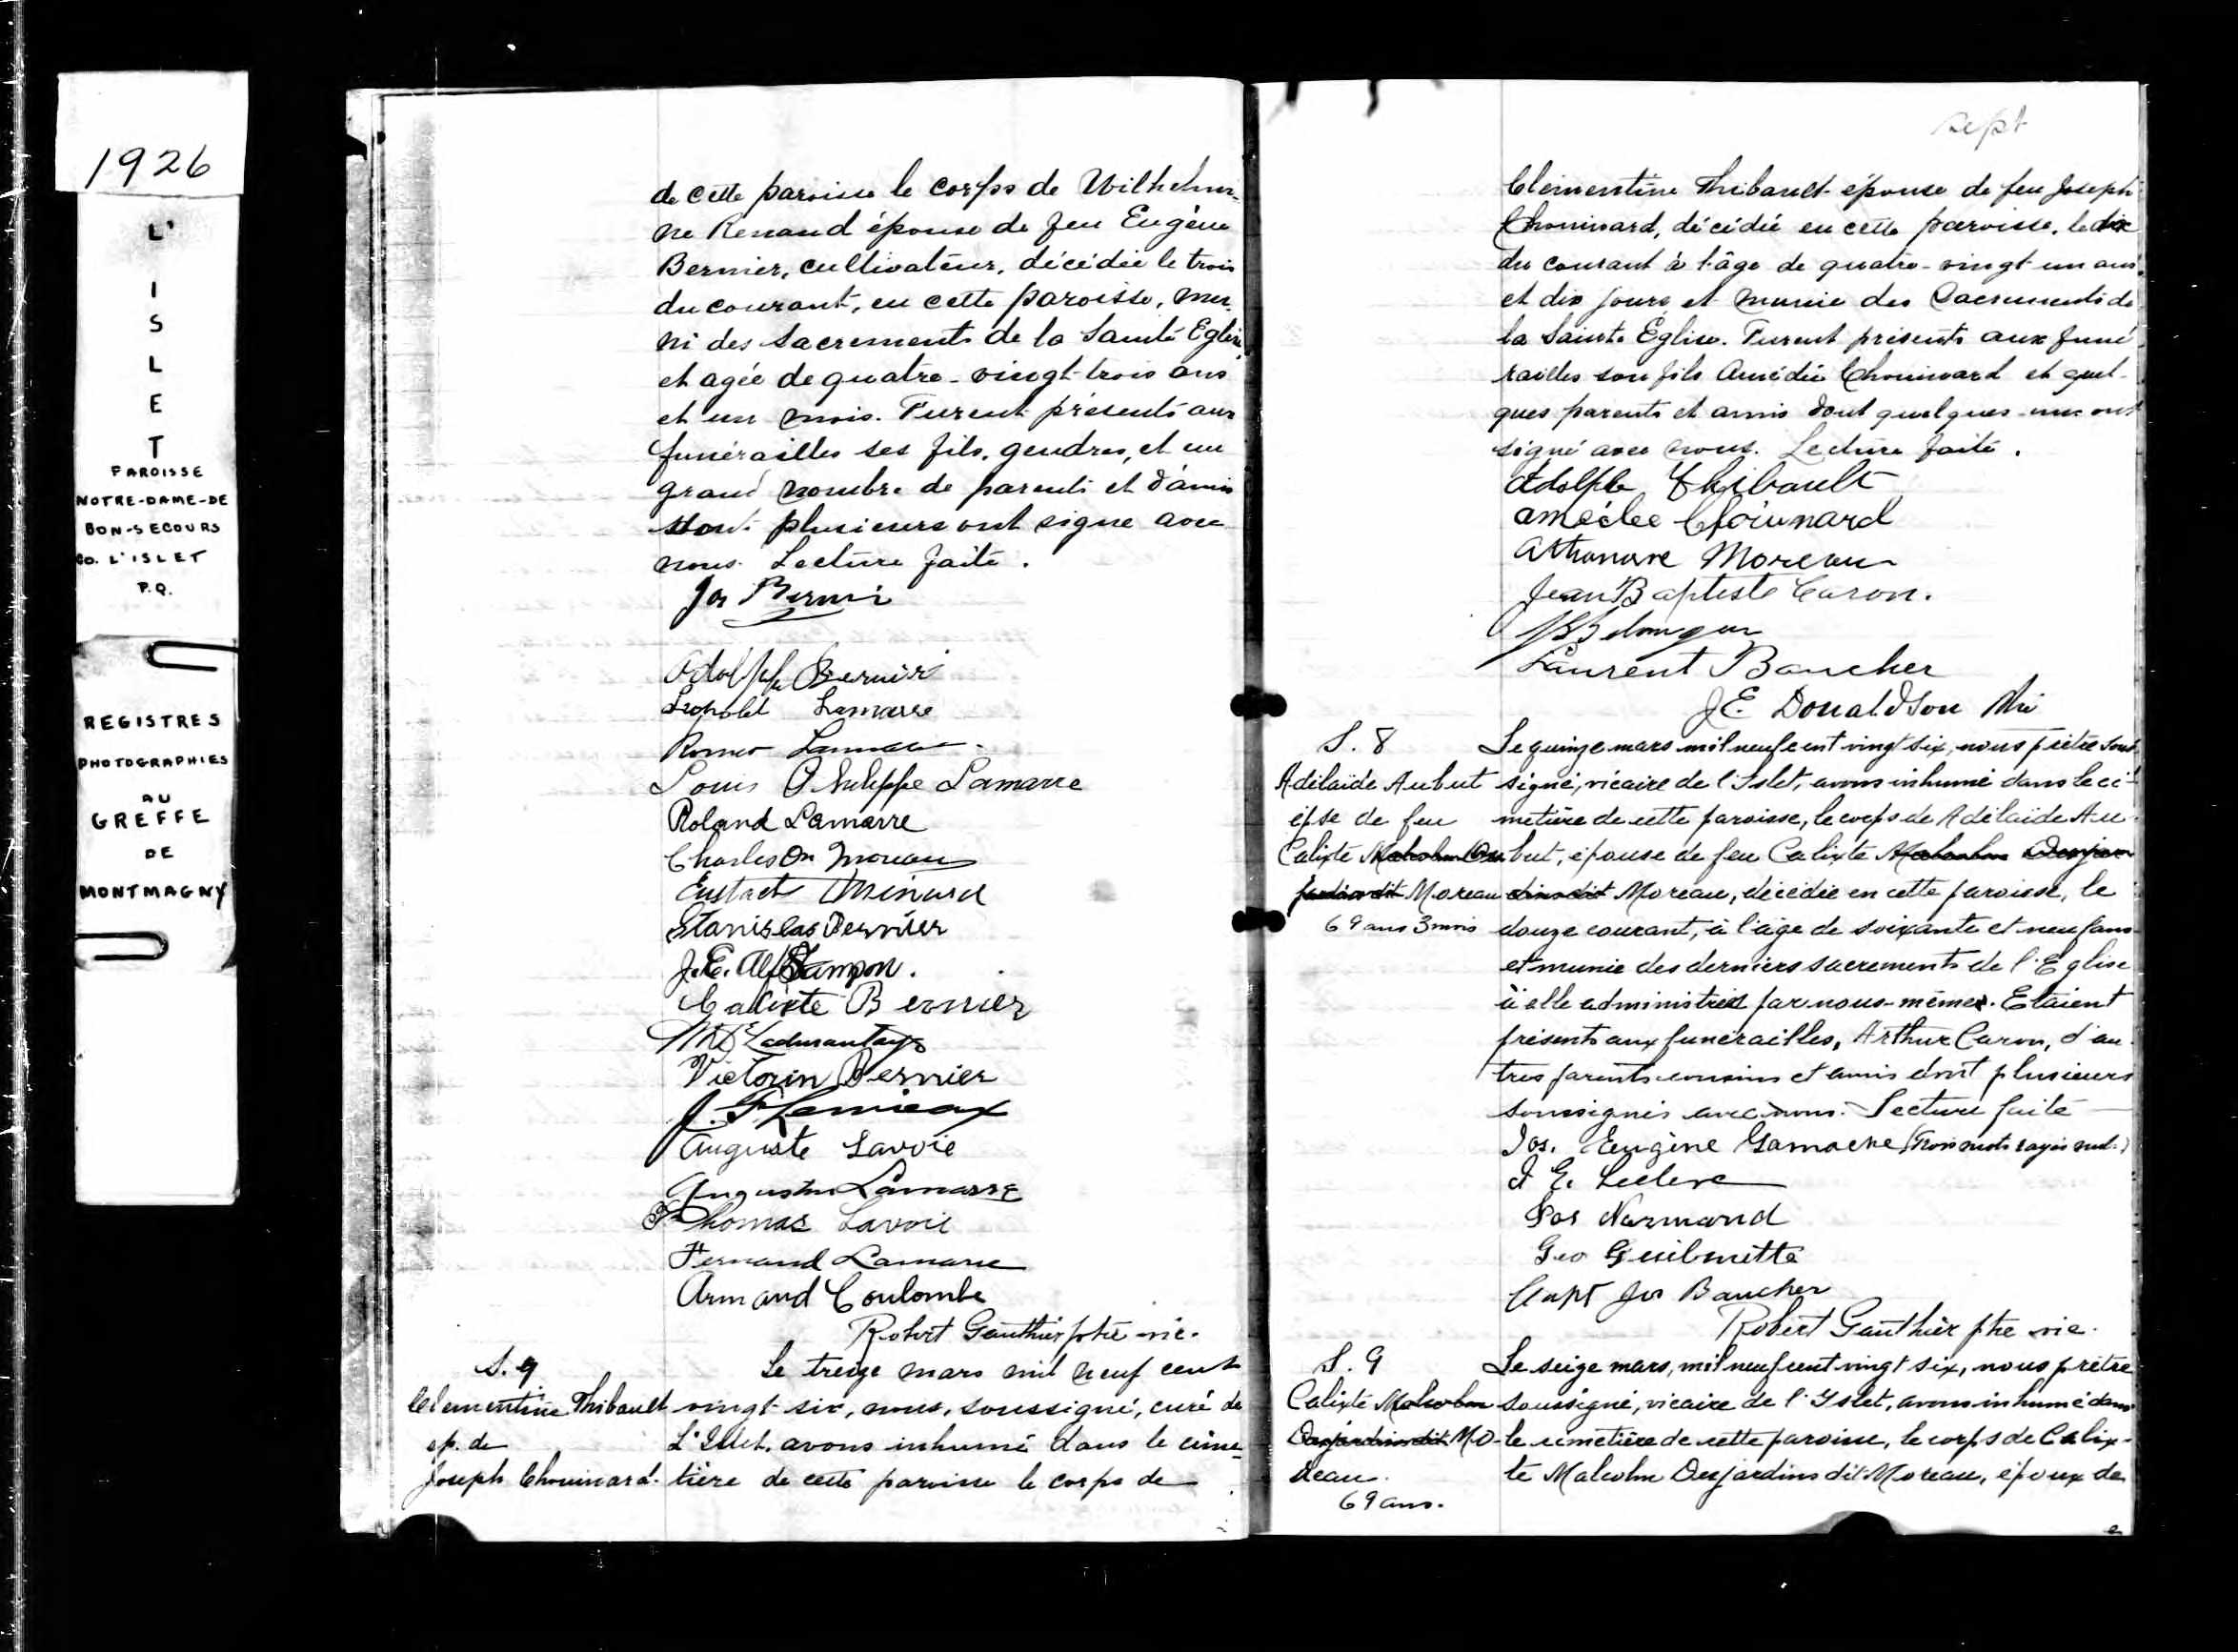 1926
L'
I
S
L
E
T
PAROISSE
NOTRE-DAME-DE
BON-SECOURS
CO. L'ISLET
P.Q.
REGISTRES
PHOTOGRAPHIES
AU
GREFFE
DE
MONTMAGNY
de cette paroisse le corps de Wilhelmi-
ne Renaud épouse de feu Eugène
Bernier, cultivateur, décédée le trois
du courant, en cette paroisse, mu-
ni des sacrements de la Sainte Eglise,
et agée de quatre-vingt-trois ans
et un mois. Furent présents aux
funérailles ses fils, gendres, et un
grand nombre de parents et d'amis
dont plusieurs ont signé avec
nous. Lecture faite.
Jos Bernier
Adolphe Bernier
Léopold Lamarre
Romeo Lamarre
Louis Philippe Lamarre
Roland Lamarre
Charles Moreau
Eustache
Stanislas Bernier
J.E. Alf Samson.
Calixte Bernier
Ladurantaye
Victorin Bernier
J. F. Lemieux
Auguste Lavoie
Augustin Lamarre
Thomas Lavoie
Fernand Lamarre
Armand Coulombe
Robert Gauthier ptre vic.
S. 7
Clementine Thibault
ep. de
Joseph Chouinard.
Le treize mars mil neuf cent
vingt-six, nous, soussigné, curé de
L'Islet, avons inhumé dans le cime-
tière de cette paroisse le corps de
sept
Clémentine Thibault épouse de feu Joseph
Chouinard, décédée en cette paroisse, le dix
du courant à l'âge de quatre-vingt-un ans
et dix jours et munie des Sacrements de
la Sainte Église. Furent présents aux funé
railles son fils Amédée Chouinard et quel-
ques parents et amis dont quelques-uns ont
signé avec nous. Lecture faite.
Adolphe Thibault
Amédee Chouinard
Athanase Moreau
Jean Baptiste Caron.
Belanger
Laurent Baucher
J.E. Donaldson Ptre
S. 8
Adélaïde Aubut
épse de feu
Calixte Malcolm Des
jardins dit Moreau
69 ans 3 mois
Le quinze mars mil neuf cent vingt six, nous prêtre sous
signé, vicaire de l'Islet, avons inhumé dans le ci-
metière de cette paroisse, le corps de Adélaïde Au-
but, épouse de feu Calixte Malcolm Desjar
dins dit Moreau, décédée en cette paroisse, le
douze courant, à l'âge de soixante et neuf ans
et munie des derniers sacrements de l'Eglise
à elle administrés par nous-même. Etaient
présents aux funérailles, Arthur Caron, d'au-
tres parents cousins et amis dont plusieurs
soussignés avec nous. Lecture faite
Jos. Eugène Gamache (Trois mots rayés nuls)
J E. Leclerc
Jos Normand
Geo Guilmette
Capt Jos Baucher
Robert Gauthier ptre vic.
S. 9
Calixte Malcolm
Desjardins dit Mo-
reau.
69 ans.
Le seize mars, mil neuf cent vingt six, nous prêtre
soussigné, vicaire de l'Islet, avons inhumé dans
le cimetière de cette paroisse, le corps de Calix-
te Malcolm Desjardins dit Moreau, époux de